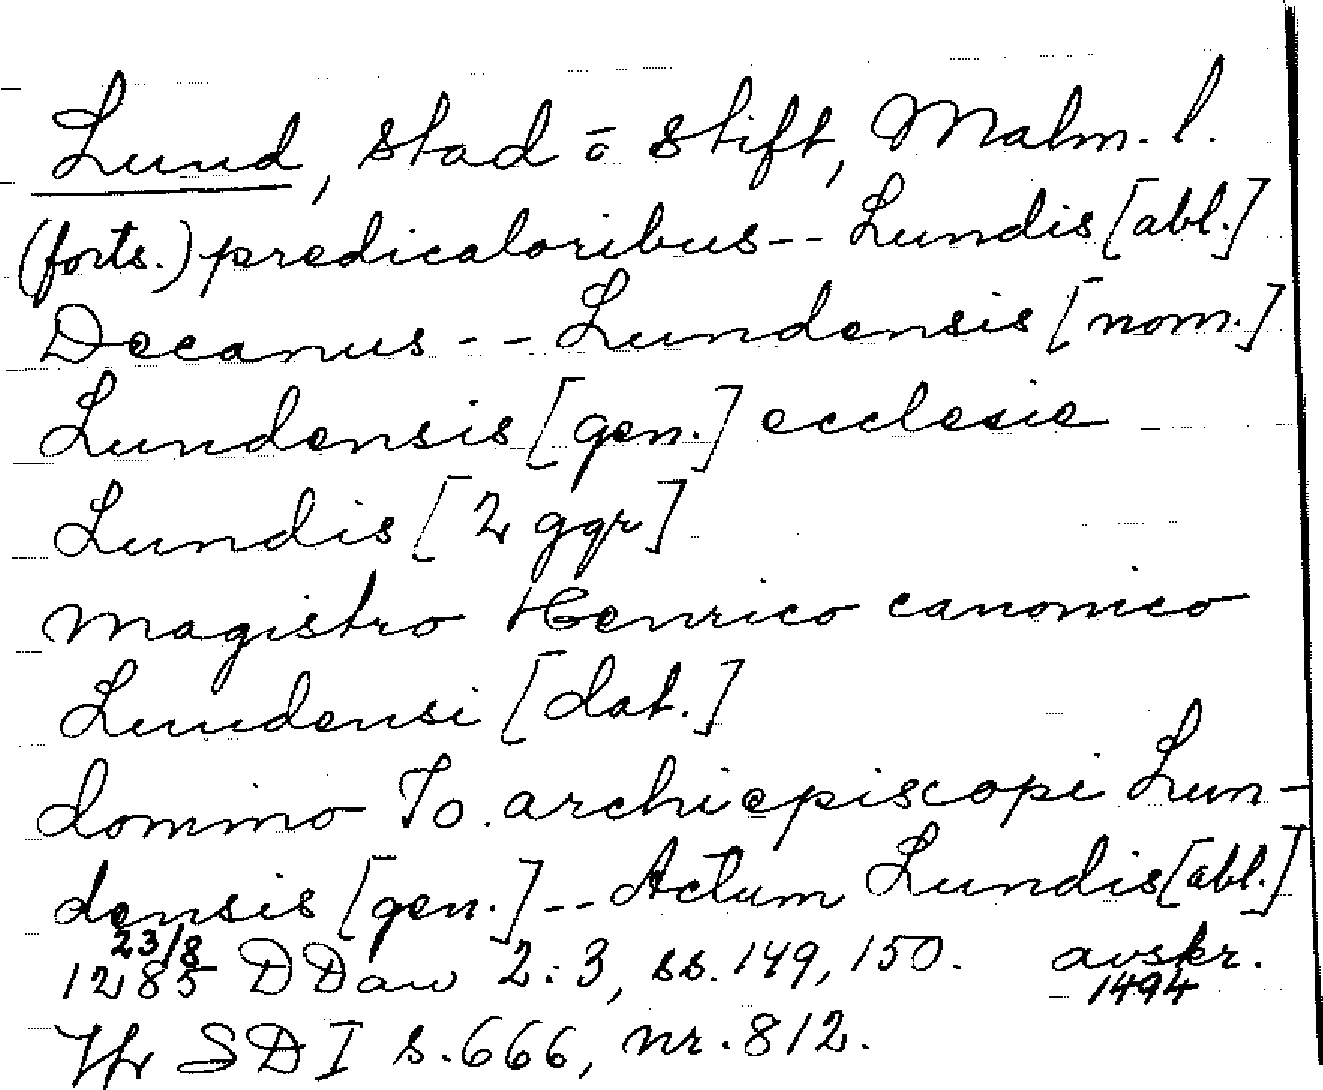 Lund, stad o stift, Malm. l.
(forts.) predicatoribus -- Lundis [abl.]
Decanus -- Lundensis [nom.]
Lundensis [gen.] ecclesie
Lundis [2 ggr]
magistro Henrico canonico
Lundensi [dat.]
domino Jo. archiepiscopi Lun-
densis [gen.] -- Actum Lundis [abl.]
23/8
1285 DDan 2:3, ss. 149, 150. avskr.
1494
Jfr SD I s. 666, nr. 812.